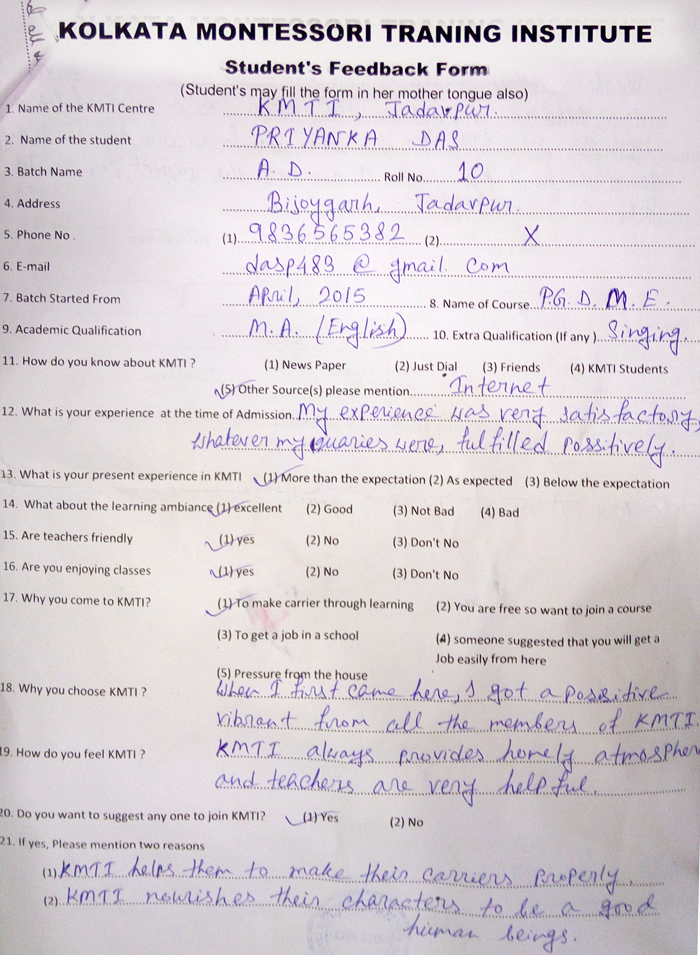 KOLKATA MONTESSORI TRANING INSTITUTE
Student's Feedback Form
(Student's may fill the form in her mother tongue also)
1. Name of the KMTI Centre KMTI, Jadavpur.
2. Name of the student PRIYANKA DAS
3. Batch Name A. D. Roll No. 10
4. Address Bijoygarh, Jadavpur.
5. Phone No. (1) 9836565382 (2) X
6. E-mail dasp483 @ gmail. com
7. Batch Started From April, 2015 8. Name of Course P.G. D. M. E.
9. Academic Qualification M.A. (English) 10. Extra Qualification (If any) Singing.
11. How do you know about KMTI ? (1) News Paper (2) Just Dial (3) Friends (4) KMTI Students
(5) Other Source(s) please mention Internet
12. What is your experience at the time of Admission. My experience was very satisfactory,
whatever my quaries were, fulfilled possitively.
13. What is your present experience in KMTI (1) More than the expectation (2) As expected (3) Below the expectation
14. What about the learning ambiance (1) excellent (2) Good (3) Not Bad (4) Bad
15. Are teachers friendly (1) yes (2) No (3) Don't No
16. Are you enjoying classes (1) yes (2) No (3) Don't No
17. Why you come to KMTI? (1) To make carrier through learning (2) You are free so want to join a course
(3) To get a job in a school (4) someone suggested that you will get a
Job easily from here
(5) Pressure from the house
18. Why you choose KMTI ? When I first came here, I got a possitive
vibrant from all the members of KMTI.
19. How do you feel KMTI ? KMTI always provides homely atmospher
and teachers are very helpful.
20. Do you want to suggest any one to join KMTI? (1) Yes (2) No
21. If yes, Please mention two reasons
(1) KMTI helps them to make their carriers properly.
(2) KMTI nourishes their characters to be a good
human beings.